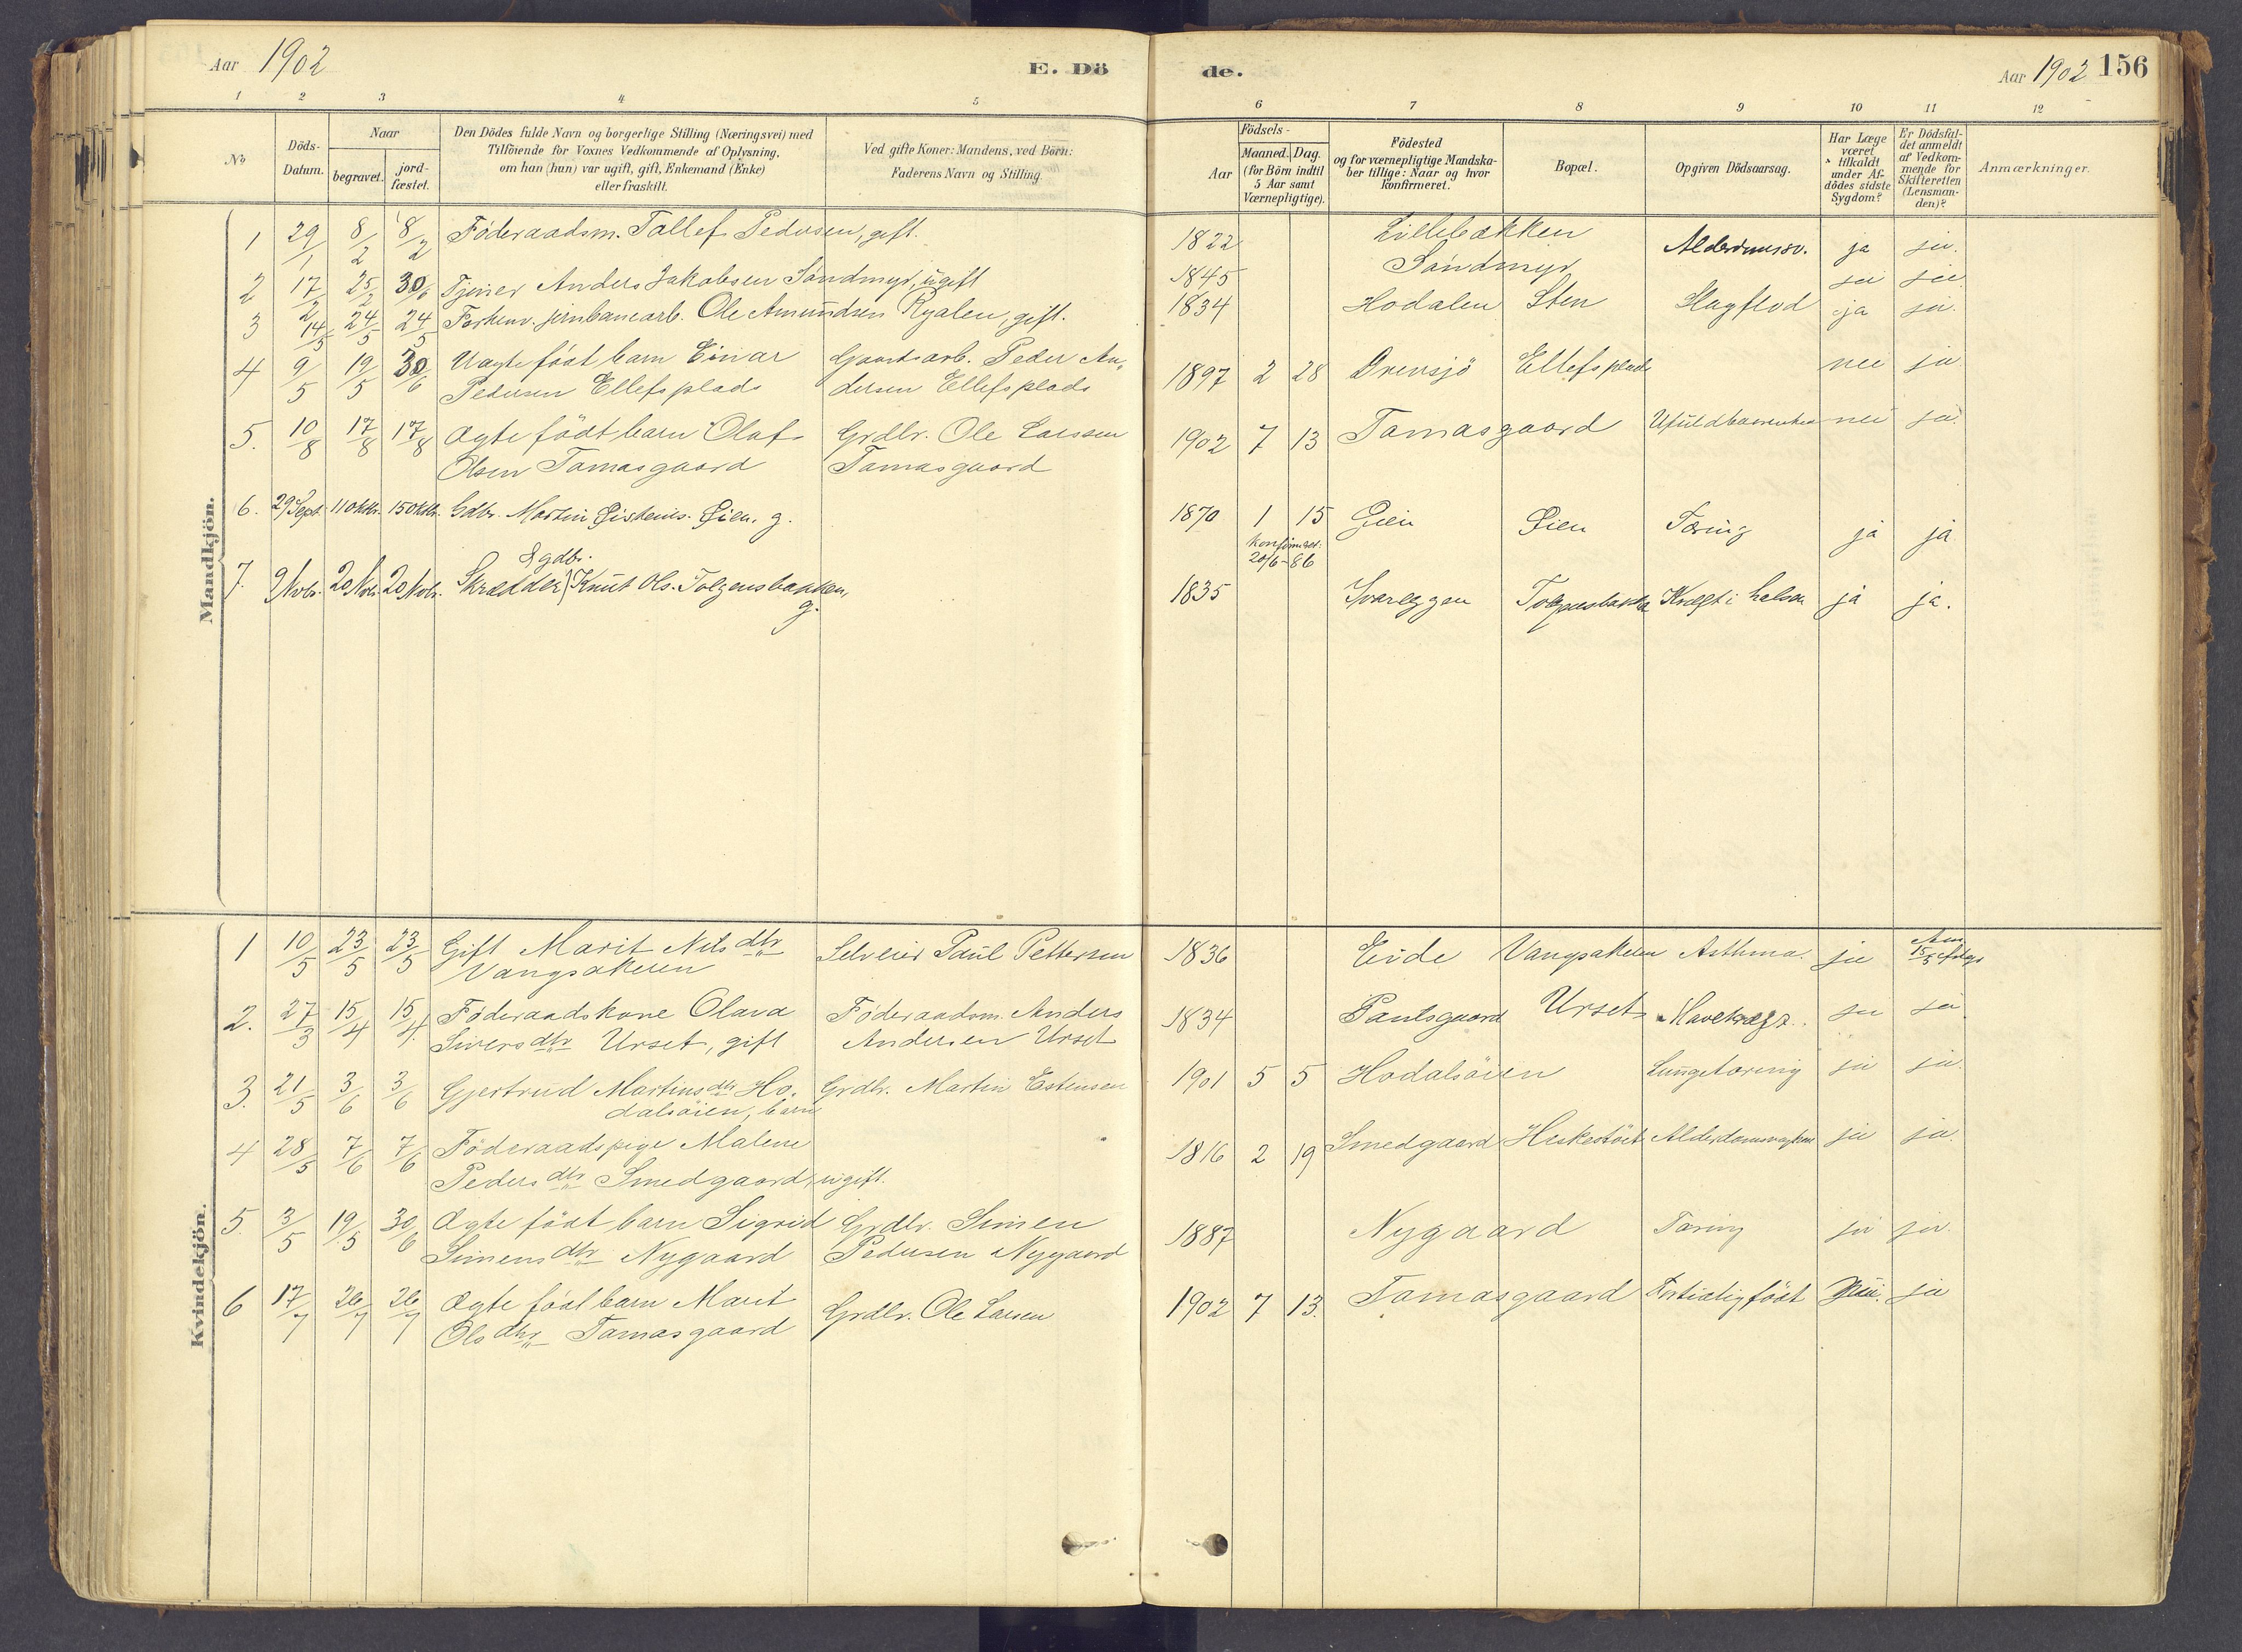 Aar 1902 E. Dö de. Aar 1902 156
1 2 3 4 5 6 7 8 9 10 11 12
No Döds-Datum. Naar begravet. jordfæstet. Den Dödes fulde Navn og borgerlige Stilling (Næringsvei) med Tilföiende for Voxnes Vedkommende af Oplysning, om han (hun) var ugift, gift, Enkemand (Enke) eller fraskilt. Ved gifte Koner: Mandens, ved Börn: Faderens Navn og Stilling. Aar Födsels- Maaned. Dag. (for Börn indtil 5 Aar samt Værnepligtige). Födested og for værnepligtige Mandskaber tillige: Naar og hvor konfirmeret. Bopæl. Opgiven Dödsaarsag. Har Læge været tilkaldt under Afdödes sidste Sygdom? Er Dödsfaldet anmeldt af Vedkommende for Skifteretten (Lensmanden)? Anmærkninger.
Mandkjön.
1 29/1 8/2 8/2 Föderaadsm. Tallef Pedersen, gift. 1822 Lillebakken ja ja.
2 17/2 25/2 30/6 Tjener Anders Jakobsen Sandmyr, ugift 1845 Sandmyr
3 14/5 24/5 24/5 Forhenv. jernbanearb. Ole Amundsen Ryalen, gift. 1834 Hodalen Sten Slagflod ja ja.
4 9/5 19/5 30/6 Uægte födt barn Einar Gaardsarb. Peder An- 1897 2 28 Drevsjö Ellefsplads nei ja
Pedersen Ellefsplads dersen Ellefsplads
5. 10/8 17/8 17/8 Ægte födt barn Olaf Grdbr. Ole Larssen 1902 7 13 Tamasgaard nei ja.
Olsen Tamasgaard Tamasgaard
6. 29 Sept. 11 Oktbr. 15 Oktbr. Gdbr. Martin Øien. g. 1870 1 15 Øien Øien Tæring ja ja
konfirmeret:
20/6-86
& gdbr.
7. 9 Nvbr. 20 Nvbr. 20 Nvbr. Skrædder Knut Ols. Tolgensbakken, 1835 Kræft i halsen ja ja.
g.
Kvindekjön.
1 10/5 23/5 23/5 Gift Marit Nilsdtr Selveier Paul Pettersen 1836 Eide Vangsakeren Asthma. ja
Vangsakeren
2. 27/3 15/4 15/4. Föderaadskone Olava Föderaadsm. Anders 1834 Paulsgaard Urset Mavekræft. ja ja
Siversdtr Urset, gift Andersen Urset
3. 21/5 3/6 3/6 Gjertrud Martinsdtr Ho- Grdbr. Martin Estensen 1901 5 5 Hodalsöien Lungetæring ja ja.
dalsöien, barn
4 28/5 7/6 7/6 Föderaadspige Malene 1816 2 19 Smedgaard ja ja.
Pedersdtr Smedgaard, ugift.
5. 3/5 19/5 30/6 Ægte födt barn Sigrid Grdbr. Simen 1887 Nygaard Tæring ja ja.
Simensdtr Nygaard Pedersen Nygaard
6 17/7 26/7 26/7 Ægte födt barn Marit Grdbr. Ole Larsen 1902 7 13. Tamasgaard Fortidlig födt Nei. ja
Olsdtr Tamasgaard